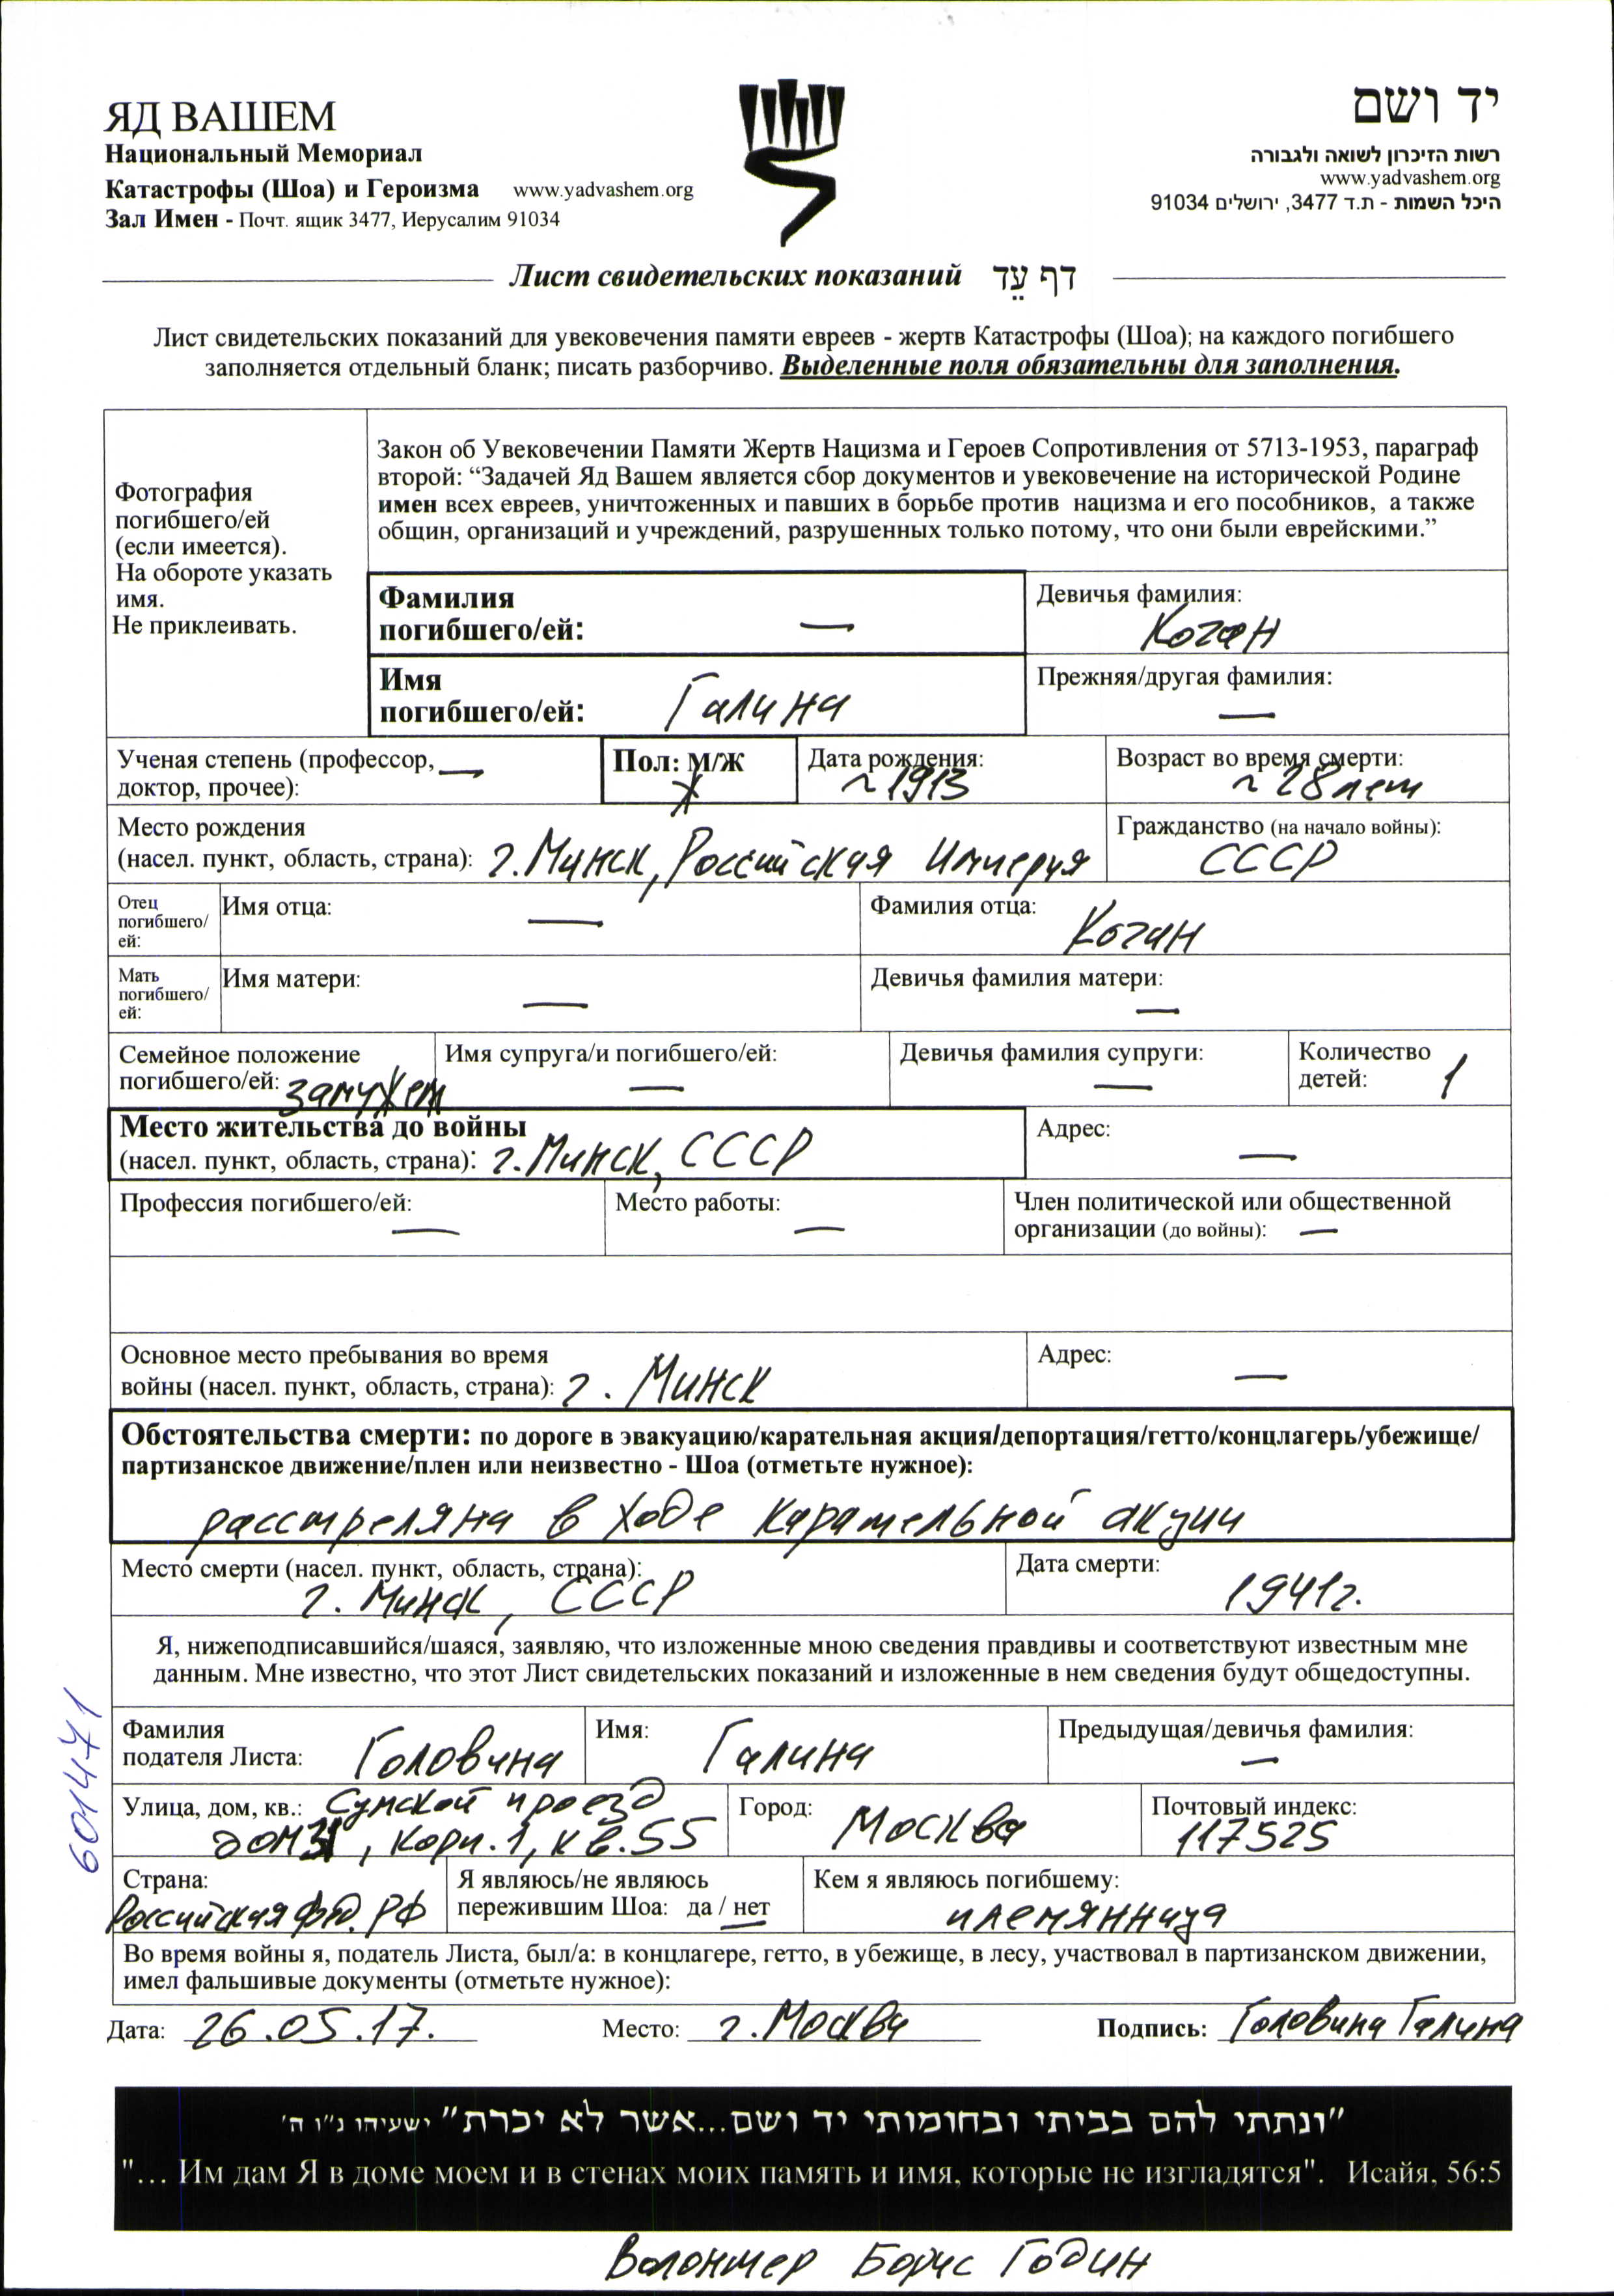 ЯД ВАШЕМ
Национальный Мемориал
Катастрофы (Шоа) и Героизма www.yadvashem.org
Зал Имен - Почт. ящик 3477, Иерусалим 91034
יד ושם
רשות הזיכרון לשואה ולגבורה
www.yadvashem.org
היכל השמות - ת.ד 3477, ירושלים 91034
Лист свидетельских показаний דף עֵד
Лист свидетельских показаний для увековечения памяти евреев - жертв Катастрофы (Шоа); на каждого погибшего
заполняется отдельный бланк; писать разборчиво. Выделенные поля обязательны для заполнения.
Фотография
погибшего/ей
(если имеется).
На обороте указать
имя.
Не приклеивать.
Закон об Увековечении Памяти Жертв Нацизма и Героев Сопротивления от 5713-1953, параграф
второй: “Задачей Яд Вашем является сбор документов и увековечение на исторической Родине
имен всех евреев, уничтоженных и павших в борьбе против нацизма и его пособников, а также
общин, организаций и учреждений, разрушенных только потому, что они были еврейскими.”
Фамилия
погибшего/ей: —
Девичья фамилия:
Коган
Имя
погибшего/ей: Галина
Прежняя/другая фамилия:
—
Ученая степень (профессор, —
доктор, прочее):
Пол: М/Ж
Дата рождения:
~1913
Возраст во время смерти:
~ 28 лет
Место рождения
(насел. пункт, область, страна): г. Минск, Российская Империя
Гражданство (на начало войны):
СССР
Отец
погибшего/
ей:
Имя отца: —
Фамилия отца: Коган
Мать
погибшего/
ей:
Имя матери: —
Девичья фамилия матери: —
Семейное положение
погибшего/ей: замужем
Имя супруга/и погибшего/ей:
—
Девичья фамилия супруги:
—
Количество
детей: 1
Место жительства до войны
(насел. пункт, область, страна): г. Минск, СССР
Адрес: —
Профессия погибшего/ей:
—
Место работы:
—
Член политической или общественной
организации (до войны): —
Основное место пребывания во время
войны (насел. пункт, область, страна): г. Минск
Адрес: —
Обстоятельства смерти: по дороге в эвакуацию/карательная акция/депортация/гетто/концлагерь/убежище/
партизанское движение/плен или неизвестно - Шоа (отметьте нужное):
расстреляна в ходе карательной акции
Место смерти (насел. пункт, область, страна):
г. Минск, СССР
Дата смерти:
1941г.
Я, нижеподписавшийся/шаяся, заявляю, что изложенные мною сведения правдивы и соответствуют известным мне
данным. Мне известно, что этот Лист свидетельских показаний и изложенные в нем сведения будут общедоступны.
601471
Фамилия
подателя Листа: Головина
Имя: Галина
Предыдущая/девичья фамилия:
—
Улица, дом, кв.: Сумской проезд
дом 31, корп. 1, кв. 55
Город: Москва
Почтовый индекс:
117525
Страна:
Российская фед. РФ
Я являюсь/не являюсь
пережившим Шоа: да / нет
Кем я являюсь погибшему:
племянница
Во время войны я, податель Листа, был/а: в концлагере, гетто, в убежище, в лесу, участвовал в партизанском движении,
имел фальшивые документы (отметьте нужное):
Дата: 26.05.17. Место: г. Москва Подпись: Головина Галина
"ונתתי להם בביתי ובחומותי יד ושם...אשר לא יכרת" ישעיהו נ"ו ה'
"... Им дам Я в доме моем и в стенах моих память и имя, которые не изгладятся". Исайя, 56:5
Волонтер Борис Годин